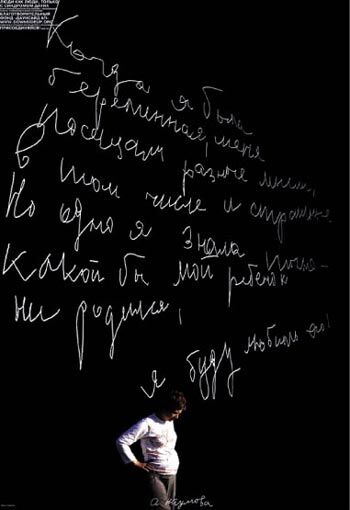 ЛЮДИ КАК ЛЮДИ, ТОЛЬКО
С СИНДРОМОМ ДАУНА
БЛАГОТВОРИТЕЛЬНЫЙ
ФОНД «ДАУНСАЙД АП»
WWW.DOWNSIDEUP.ORG
Когда я была
беременная, меня
посещали разные мысли,
в том числе и страшные.
Но одно я знала точно -
какой бы мой ребенок
ни родился,
я буду любить его!
а. наумова